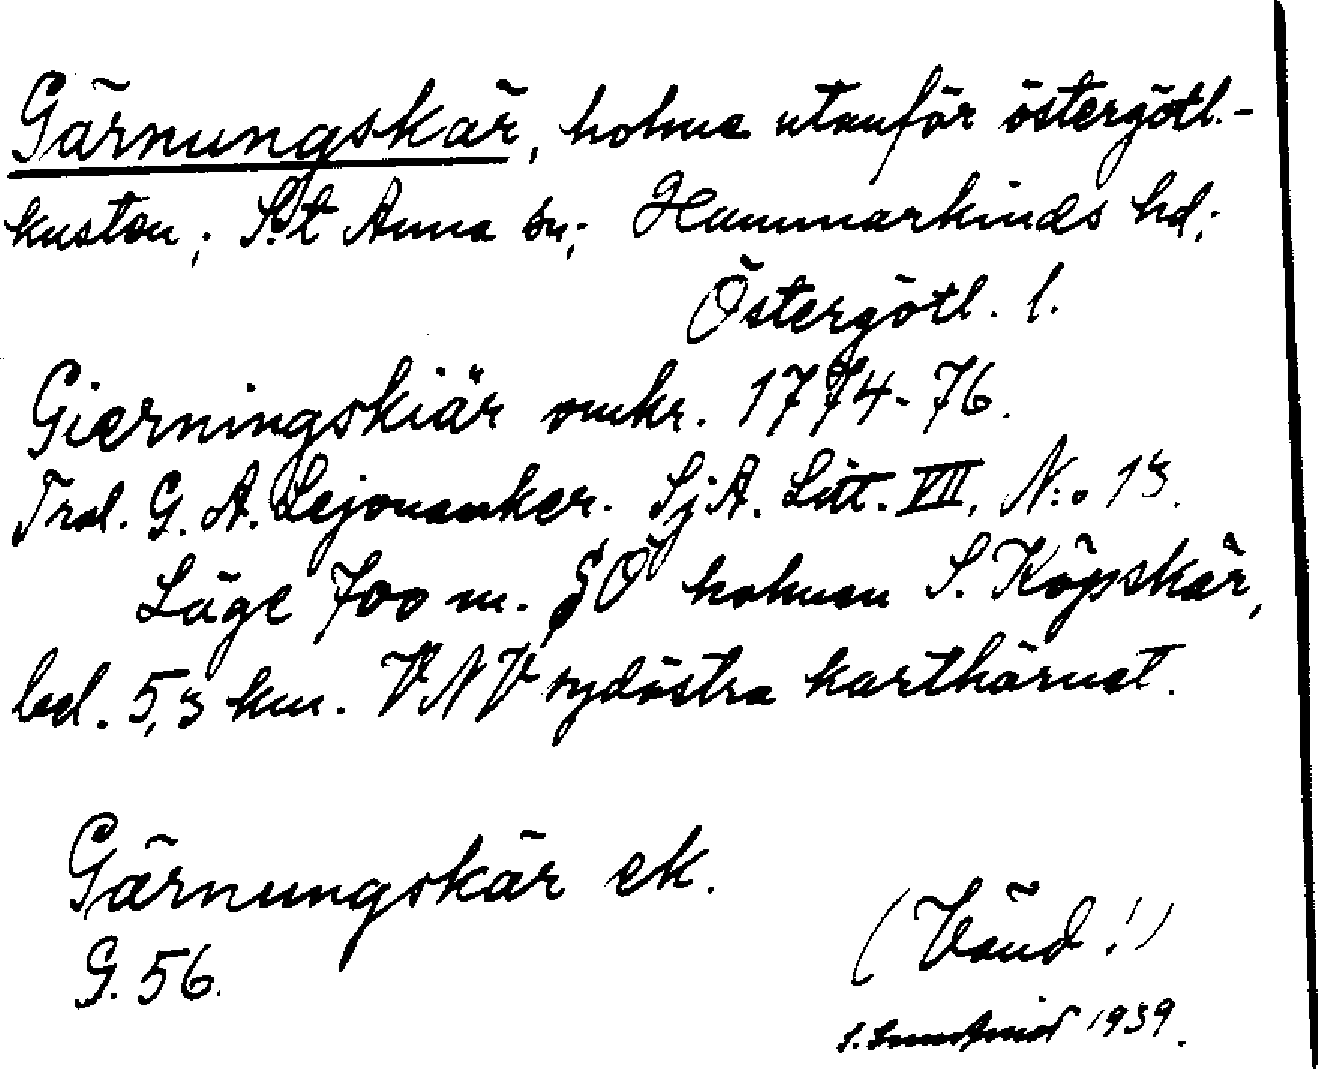 Gärnungskär, holme utanför östergötl.-
kusten; S:t Anna sn; Hammarkinds hd;
Östergötl. l.
Gierningskiär omkr. 1774-76.
Trol. G. A. Lejonanker. SjA. Litt. VII, N:o 13.
Läge 700 m. SÖ holmen S. Köpskär,
bel. 5,3 km. VNV sydöstra karthörnet.
Gärnungskär ek.
G. 56.
(Vänd!)
1939.